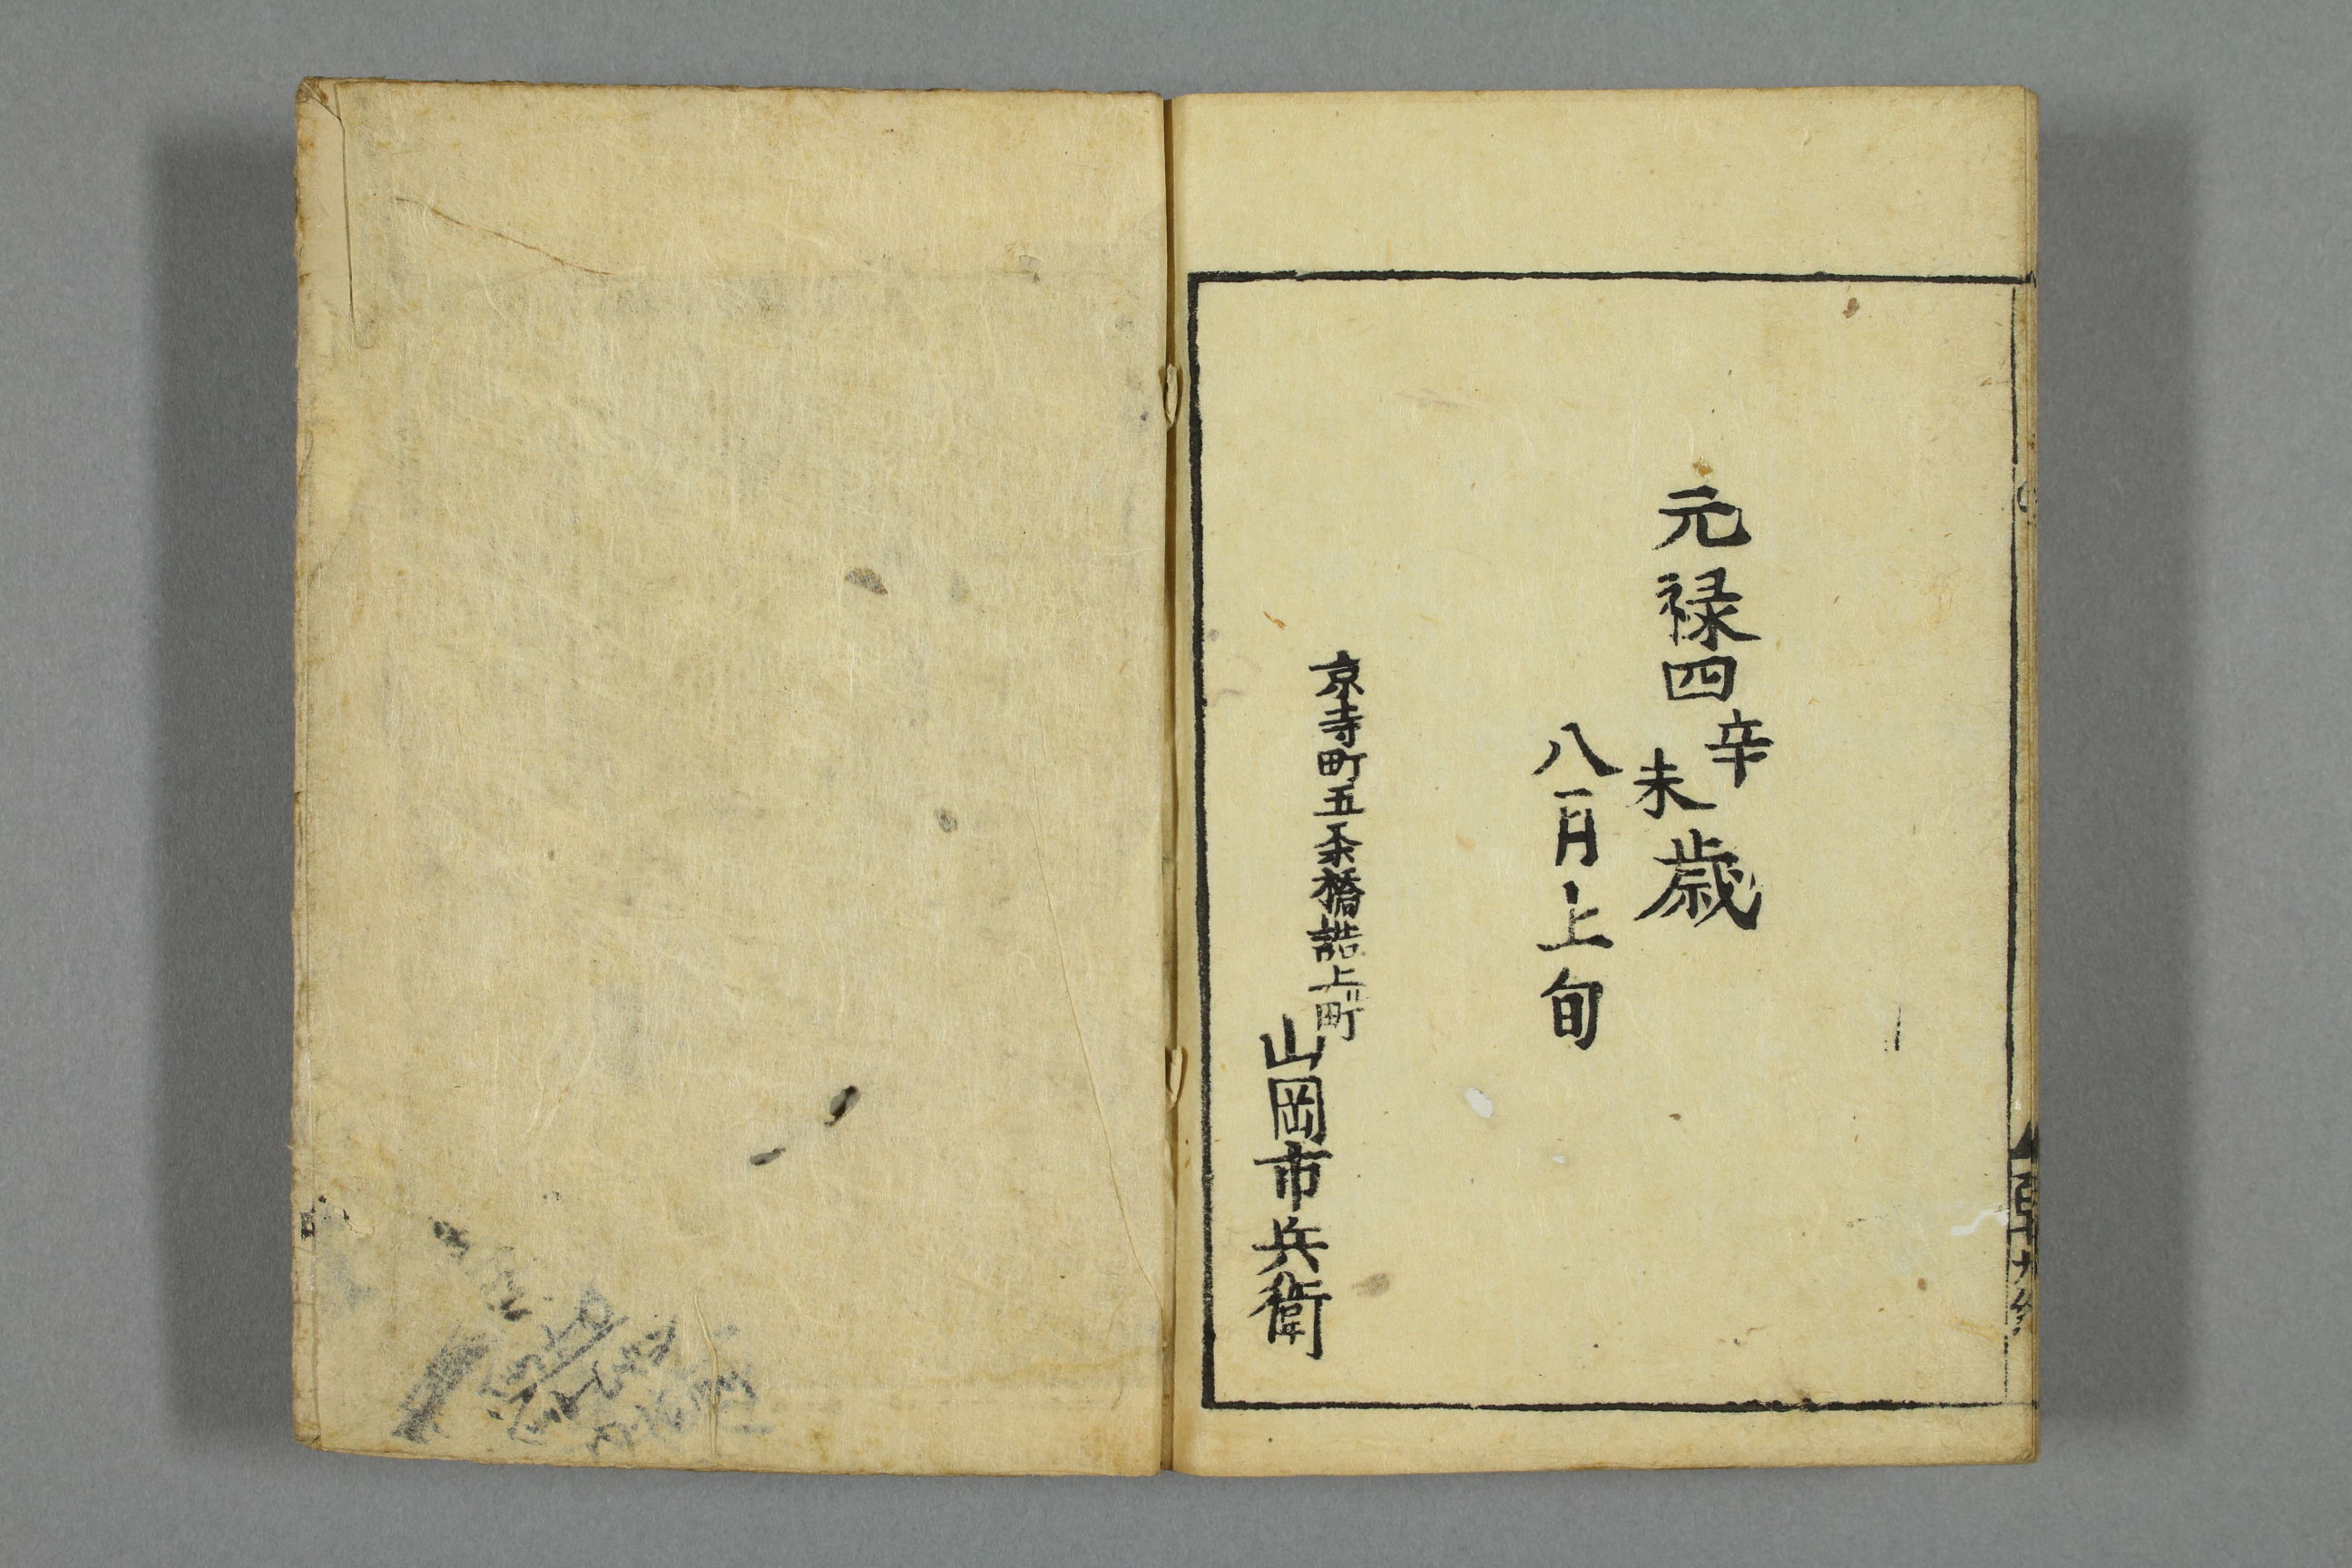 元禄四辛未歳
八月上旬
京寺町五条橋詰上ル町
山岡市兵衛